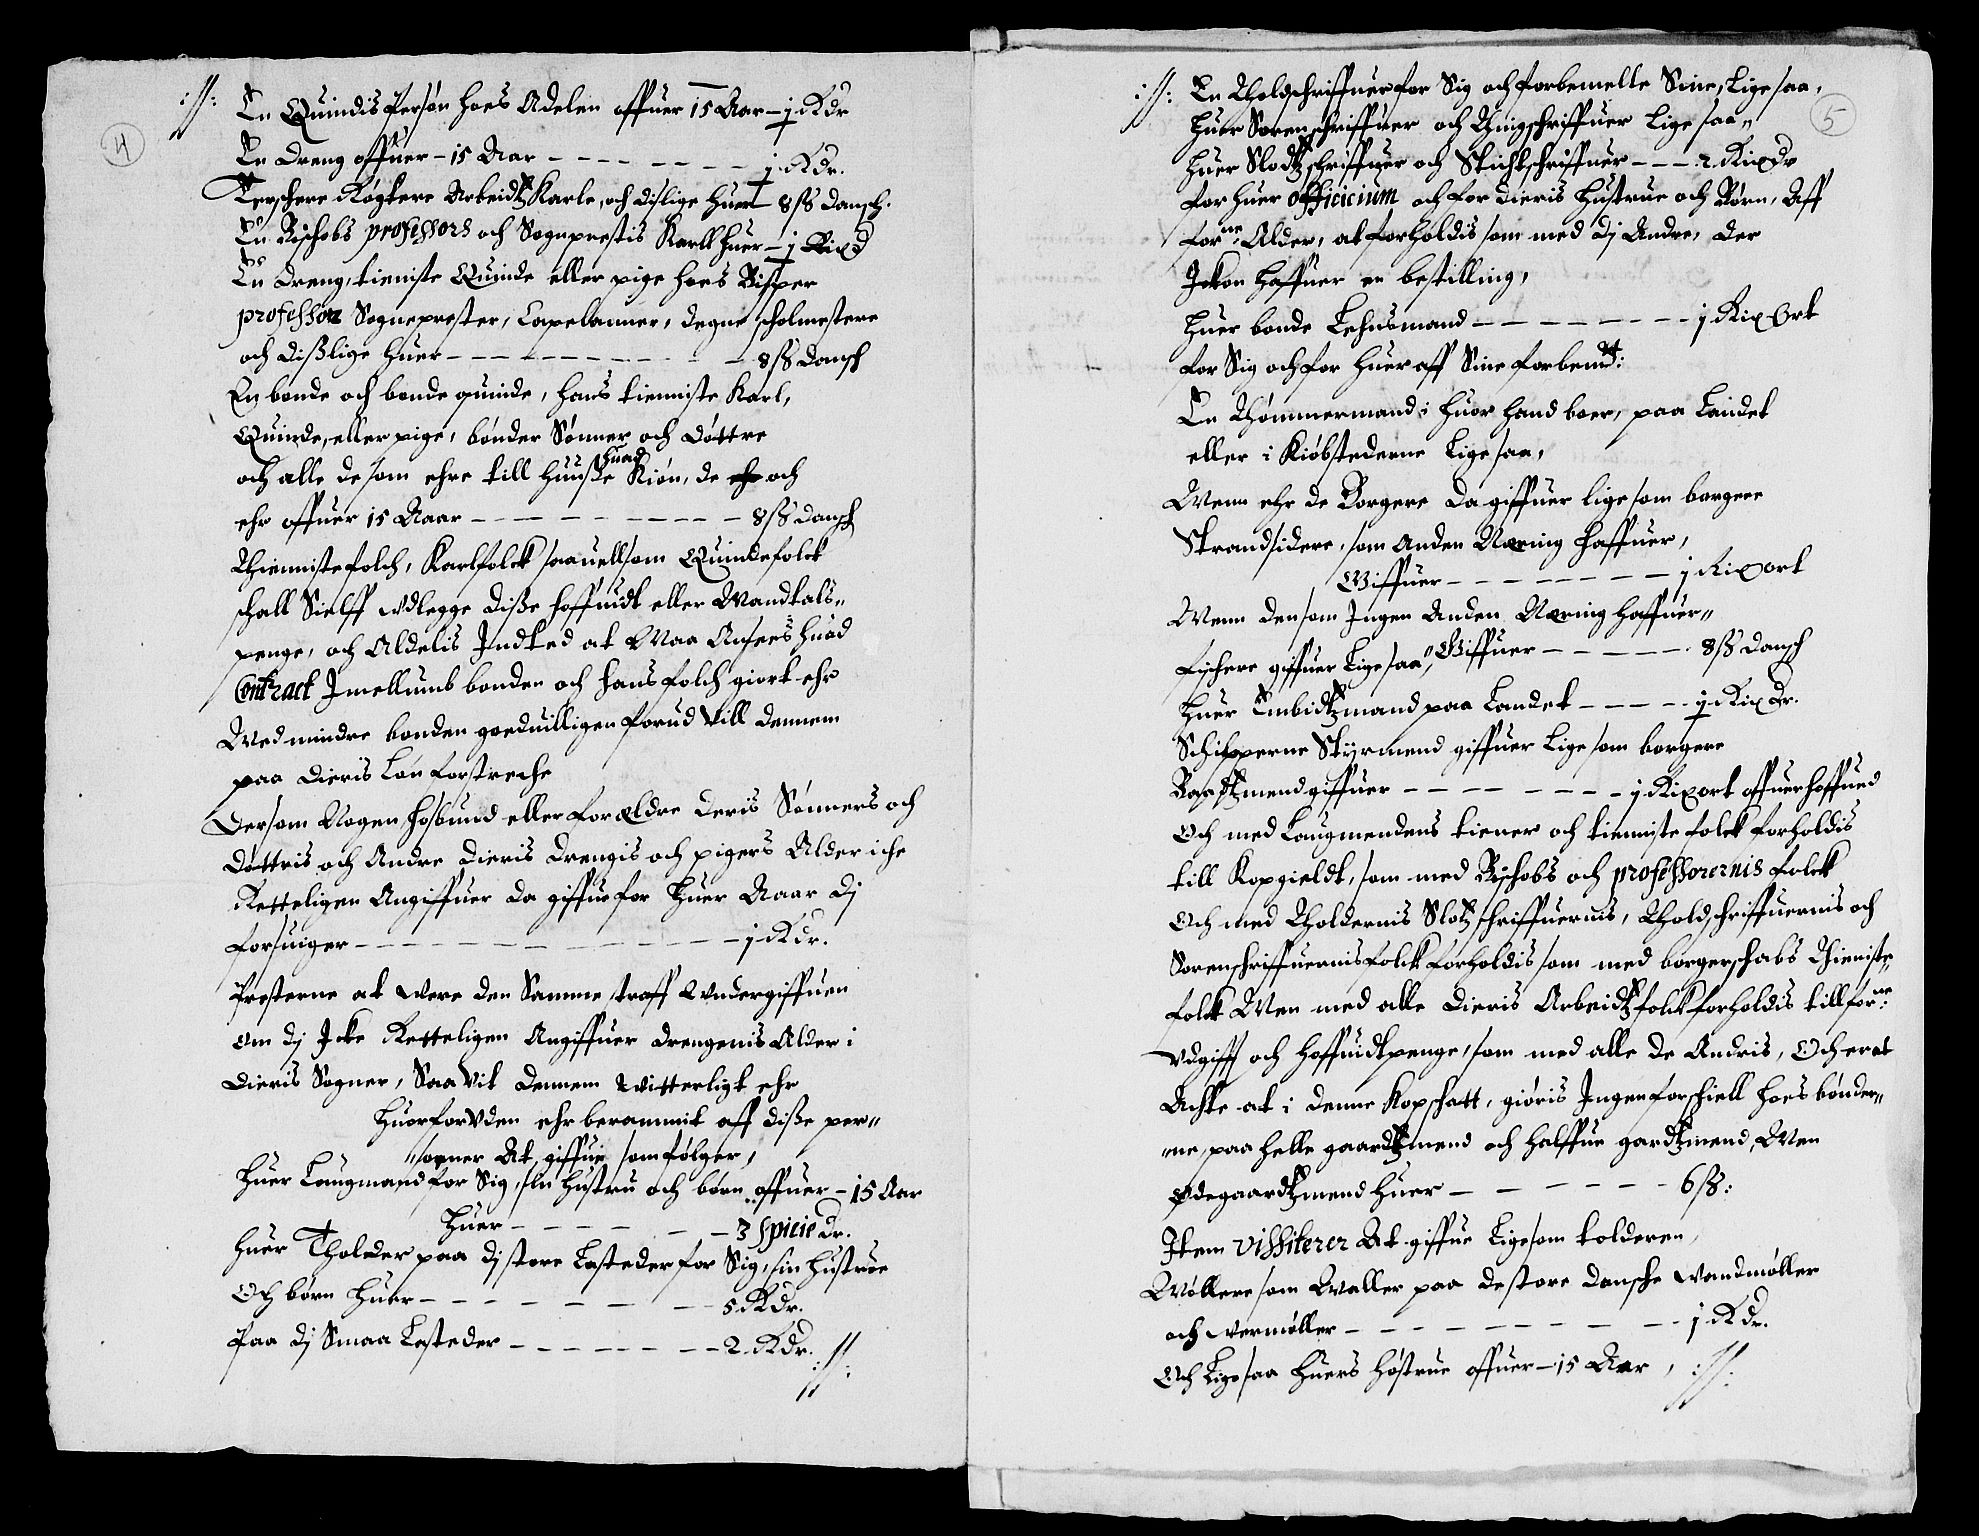 4
://:
En Quindis Persøn hoes Adelen offuer 15 Aar – j Rdr
En dreng offuer – 15 Aar – – – – – – – j Rdr.
Terschere Røgtere Arbeidtz Karle, och dislige huer 8 ß dansch.
En Bischobs professors och Sogneprestis Karll huer – j Rixd
En dreng, tieniste Quinde eller pige hoes Bisper
professor Sogneprester, Capelaaner, degne scholmestere
och dißlige huer – – – – – – – – – 8 ß dansch
En bonde och bonde quinde, hans tienniste Karl,
Quinde, eller pige, bønder Sønner och døttre
och alle de som ehre till huuße huad Kiøn, de ehr och
ehr offuer 15 Aaar – – – – – – – – – 8 ß dansch
Thiennistefolch, Karlfolck saauellsom Quindefolck
schall Sielff vdlegge diße hoffuidt eller Mandtals-
penge, och Aldelis Indted at Maa Ansees huad
Contract Imellumb bonden och hans folch giort ehr
Med mindre bonden goeduilligen forud till dennem
paa dieris Løn forstreche
Dersom Nogen hosbund eller forældre deris Sønners och
døttris och Andre dieris drengis och pigers Alder iche
Retteligen Angiffuer da giffue for huer Aaar dj
forsuiger – – – – – – – – – – – – – j Rdr.
Presterne at were den Samme straff Vndergiffuen
om dj Icke Retteligen Angiffuer drengenis Alder i
dieris Sogner, Saa vit dennem witterligt ehr
huorforvden ehr berammit aff diße per-
soner At giffue som følger,
huer Laugmand for Sig, sin hustru och børn offuer – 15 Aar
huer – – – – – – – 3 spicie dr.
huer Tholder paa dj store Lasteder for Sig, sin hustrue
Och børn huer – – – – – – – – 5 Rdr.
Paa dj Smaa Lasteder – – – – – – – 2 Rdr.
://:
5
://: En Tholdschriffuer for Sig och forbemelte Sine, Lige saa,
huer Sorenschriffuer och Thingschriffuer Lige saa-
huer Slodtzschriffuer och Stichtschriffuer – – – 2 Rixdr
for huer officicium och for dieris hustrue och Børn, Aff
forne: Alder, at forholdis som med dj Andre, der
Ickon haffuer en bestilling,
huer bonde Lehnsmand – – – – – – – – j Rix Ort
for Sig och for huer aff Sine forbemt:
En Thømmermand, huor hand boer, paa Landet
eller i Kiøbstederne Lige saa,
Menn ehr de Borgere da giffuer lige som borgere
Strandsidere, som Anden Næring haffuer,
Giffuer – – – – – – – – j Rixort
Menn den som Ingen Anden Næring haffuer-
Fischere giffuer Lige saa, Giffuer – – – – – 8 ß dansch
huer Embidtzmand paa Landet – – – – – j Rixdr.
Schipperne Styrmend giffuer Lige som borgere
Baadtzmend giffuer – – – – – – – – j Rixort offuerhoffued
Och med Laugmendens tiener och tienniste folck forholdis
till Kopgieldt, som med Bischobs och professorernis folck
Och med Tholdernis Slotzschriffuernis, Tholdschriffuernis och
Sorenschriffuernis folck forholdis som med borgerschabs Thieniste-
folck Men med alle dieris Arbeidtzfolck forholdis till forne:
Vdgifft och hoffuidtpenge, som med alle de Andris, Och er at
Achte at i denne Kopschatt, giøris Ingen forschiell hoes bønder-
-ne, paa helle gaardtzmend och halffue gardtzmend, Men
Ødegaardtzmend huer – – – – – – 6 ß:
Item vissiterer At giffue Lige som tolderen,
Møllere som Maller paa de store dansche wandmøller
och veermøller – – – – – – – – – j Rdr.
Och Lige saa huers høstrue offuer – 15 Aar, ://: